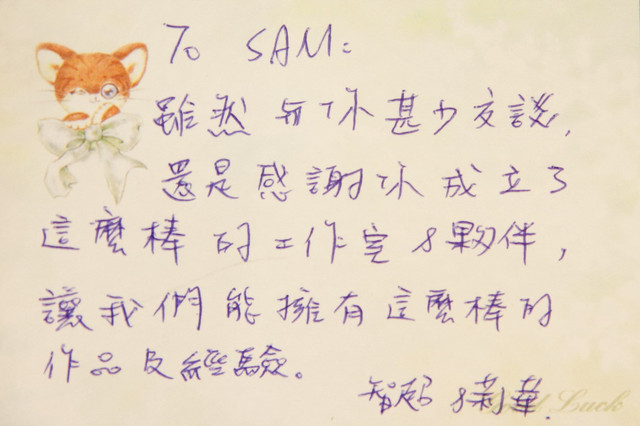 To SAM:
雖然與你甚少交談,
還是感謝你成立了
這麼棒的工作室&夥伴,
讓我們能擁有這麼棒的
作品及經驗。
智 &莉華
Luck